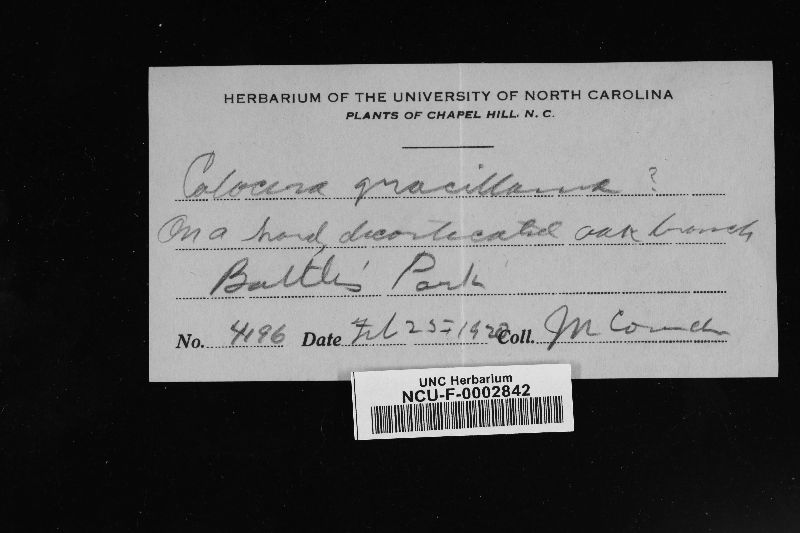 HERBARIUM OF THE UNIVERSITY OF NORTH CAROLINA
PLANTS OF CHAPEL HILL, N. C.
Calocera gracillama ?
On a hard, decorticated oak branch
Battle's Park
No. 4196 Date Feb 25- 1920 Coll. J N Couch
UNC Herbarium
NCU-F-0002842